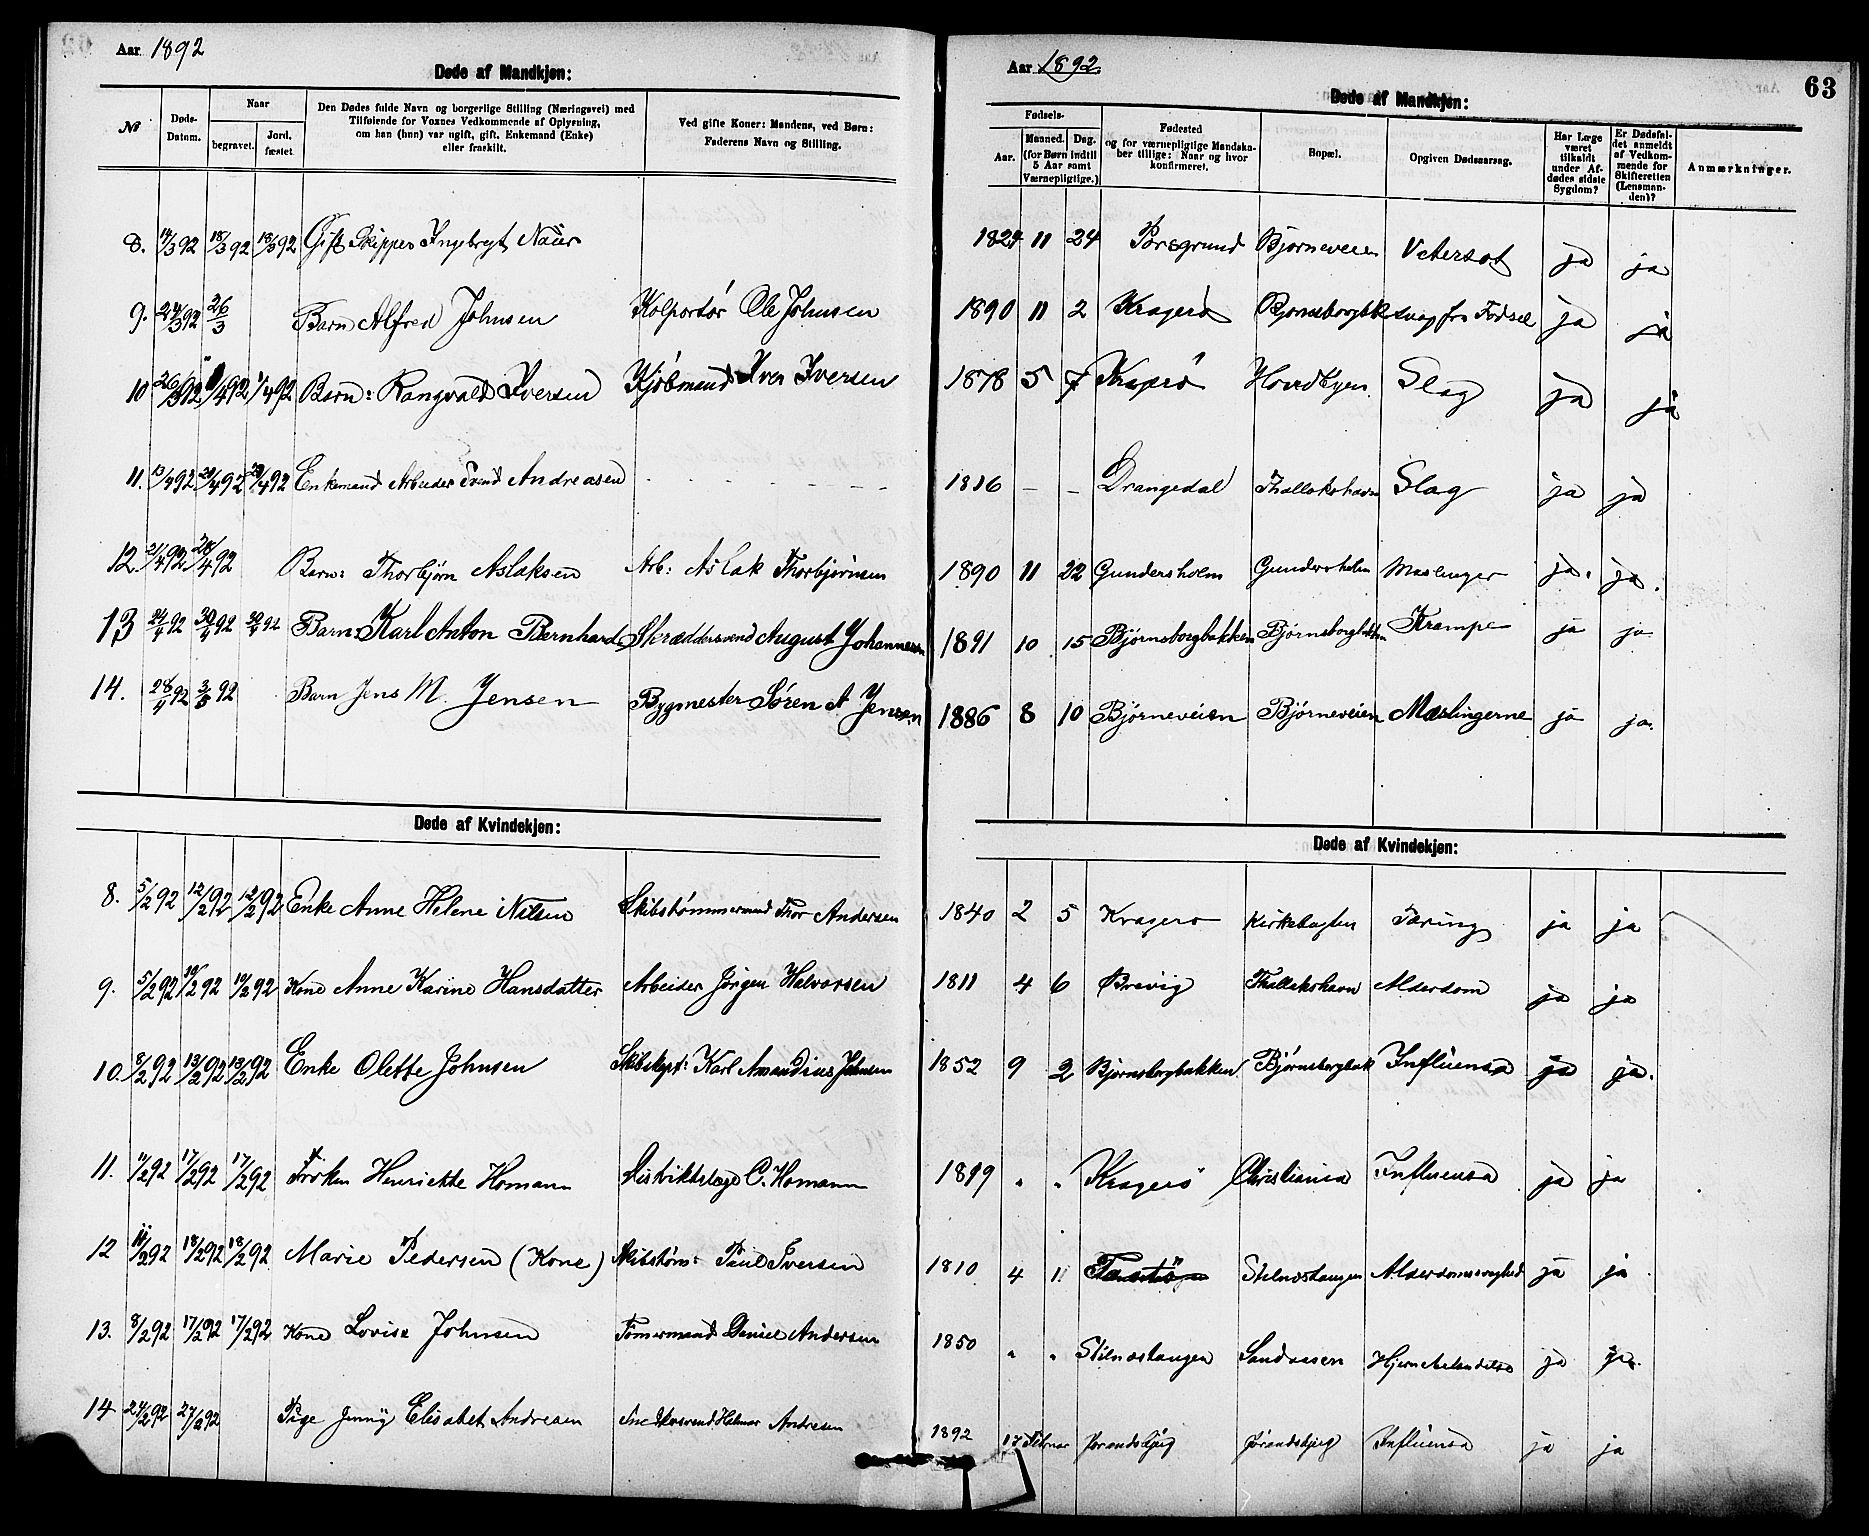 Aar 1892
Døde af Mandkjøn:
№
Døds-Datum.
Naar
begravet.
Jord-fæstet.
Den Dødes fulde Navn og borgerlige Stilling (Næringsvei) med
Tilføiende for Voxnes Vedkommende af Oplysning,
om han (hun) var ugift, gift, Enkemand (Enke)
eller fraskilt.
Ved gifte Koner: Mandens, ved Børn:
Faderens Navn og Stilling.
8. 14/3 92 18/3 92 18/3 92 Gift Skipper Ingebrgt Næss
9. 24/3 92 26/3 Barn Alfred Johnsen Kolportør Ole Johnsen
10 26/3 92 1/4 92 1/4 92 Barn: Rangvald Iversen Kjøbmand Iver Iversen
11. 13/4 92 20/4 92 20/4 92 Enkemand Arbeider Svend Andreasen
12. 21/4 92 28/4 92 Barn: Thorbjørn Aslaksen Arb: Aslak Thorbjørnsen
13 24/4 92 30/4 92 30/4 92 Barn: Karl Anton Bernhard Skræddersvend August Johannesen
14. 28/4 92 3/5 92 Barn Jens M. Jensen Bygmester Søren A Jensen
Døde af Kvindekjøn:
8. 5/2 92 12/2 92 12/2 92 Enke Anne Helene Nilsen Skibstømmermand Thor Andersen
9. 5/2 92 10/2 92 10/2 92 Kone Anne Karine Hansdatter Arbeider Jørgen Halvorsen
10. 8/2 92 13/2 92 13/2 92 Enke Olette Johnsen Skibskapt: Karl Amandius Johnsen
11. 11/2 92 17/2 92 17/2 92 Frøken Henriette Homann Distriktslæge C. Homann
12 11/2 92 18/2 92 18/2 92 Marie Pedersen (Kone) Skibstøm: Paul Iversen
13. 8/2 92 17/2 92 17/2 92 Kone Lovise Johnsen Tømermand Daniel Andersen
14 24/2 92 27/2 92 Pige Jenny Elisabet Andresen Halmar Andresen
Aar 1892.
63
Døde af Mandkjøn:
Fødsels-
Aar.
Maaned.
Dag.
(for Børn indtil
5 Aar samt
Værnepligtige.)
Fødested
og for værnepligtige Mandska-
ber tillige: Naar og hvor
konfirmeret.
Bopæl.
Opgiven Dødsaarsag.
Har Læge
været
tilkaldt
under Af-
dødes sidste
Sygdom?
Er Dødsfal-
det anmeldt
af Vedkom-
mende for
Skifteretten
(Lensman-
den)?
Anmærkninger.
1824 11 24 Porsgrund Bjørneveien Vetersot ja ja
1890 11 2 Kragerø Bjørnsborgbk svag fra Fødsel ja ja
1878 5 7 Kragerø Hovedbyen Slag ja ja
1816 — — Drangedal Thallakshavn Slag ja ja
1890 11 22 Gundersholm Gundersholm Meslinger ja. ja.
1891 10 15 Bjørnsborgbakken Bjørnsborgbakken Krampe ja ja
1886 8 10 Bjørneveien Bjørneveien Mæslingerne ja ja.
Døde af Kvindekjøn:
1840 2 5 Kragerø Kirkebugten Tæring ja ja
1811 4 6 Brevig Thallakshavn Alderdom ja ja
1852 9 2 Bjørnsborgbakken Bjørnsborgbak Influensa ja ja.
1819 " " Kragerø Christiania Influensa ja ja
1810 4 11 Stilnestangen Alderdomssvaghed ja ja
1850 " " Stilnestangen Sandaasen Hjernebetændelse ja ja.
1892 17 Februar Jørandsbjerg Jørandsbjerg Influensa ja ja